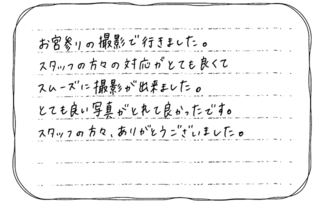 お宮参りの撮影で行きました。
スタッフの方々の対応がとても良くて
スムーズに撮影が出来ました。
とても良い写真がとれて良かったです。
スタッフの方々、ありがとうございました。